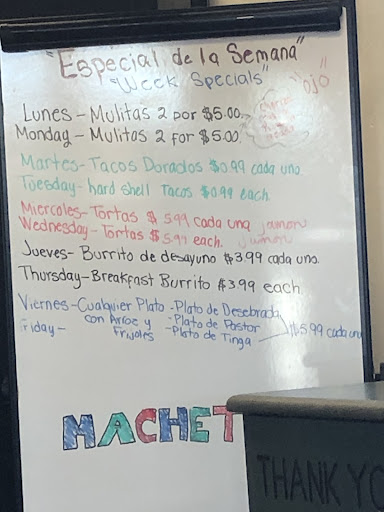 "Especial de la Semana"
"Week Specials"
"Ojo"
Lunes - Mulitas 2 por $5.00.
Monday - Mulitas 2 for $5.00.
Martes - Tacos Dorados $0.99 cada uno.
Tuesday - hard shell Tacos $0.99 each.
Miercoles - Tortas $5.99 cada una jamon
Wednesday - Tortas $5.99 each. Jamon
Jueves - Burrito de desayuno $3.99 cada uno.
Thursday - Breakfast Burrito $3.99 each
Viernes - Cualquier Plato - Plato de Desebrada
con Arroz y - Plato de Pastor $5.99 cada uno
Friday - Frijoles - Plato de Tinga
MACHET
THANK YO